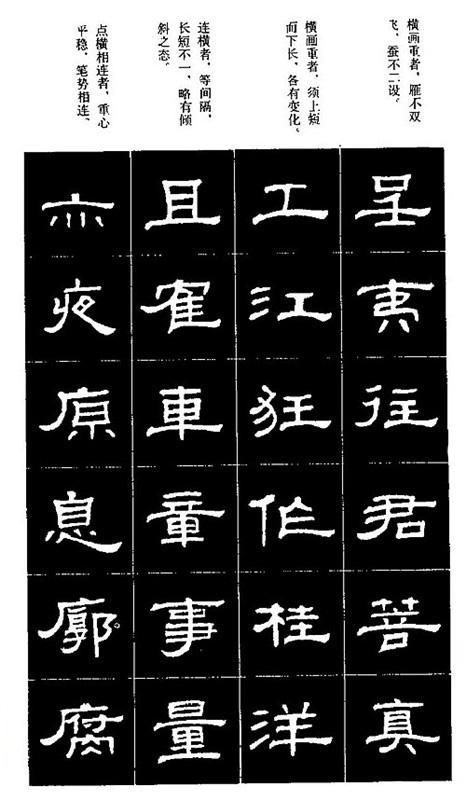 横画重者，雁不双
飞，蚕不二设。
横画重者，须上短
而下长，各有变化。
连横者，等间隔，
长短不一，略有倾
斜之态。
点横相连者，重心
平稳，笔势相连。
呈夷往君菩真
工江狂作桂洋
且車童事量
亦夜原息廓腐